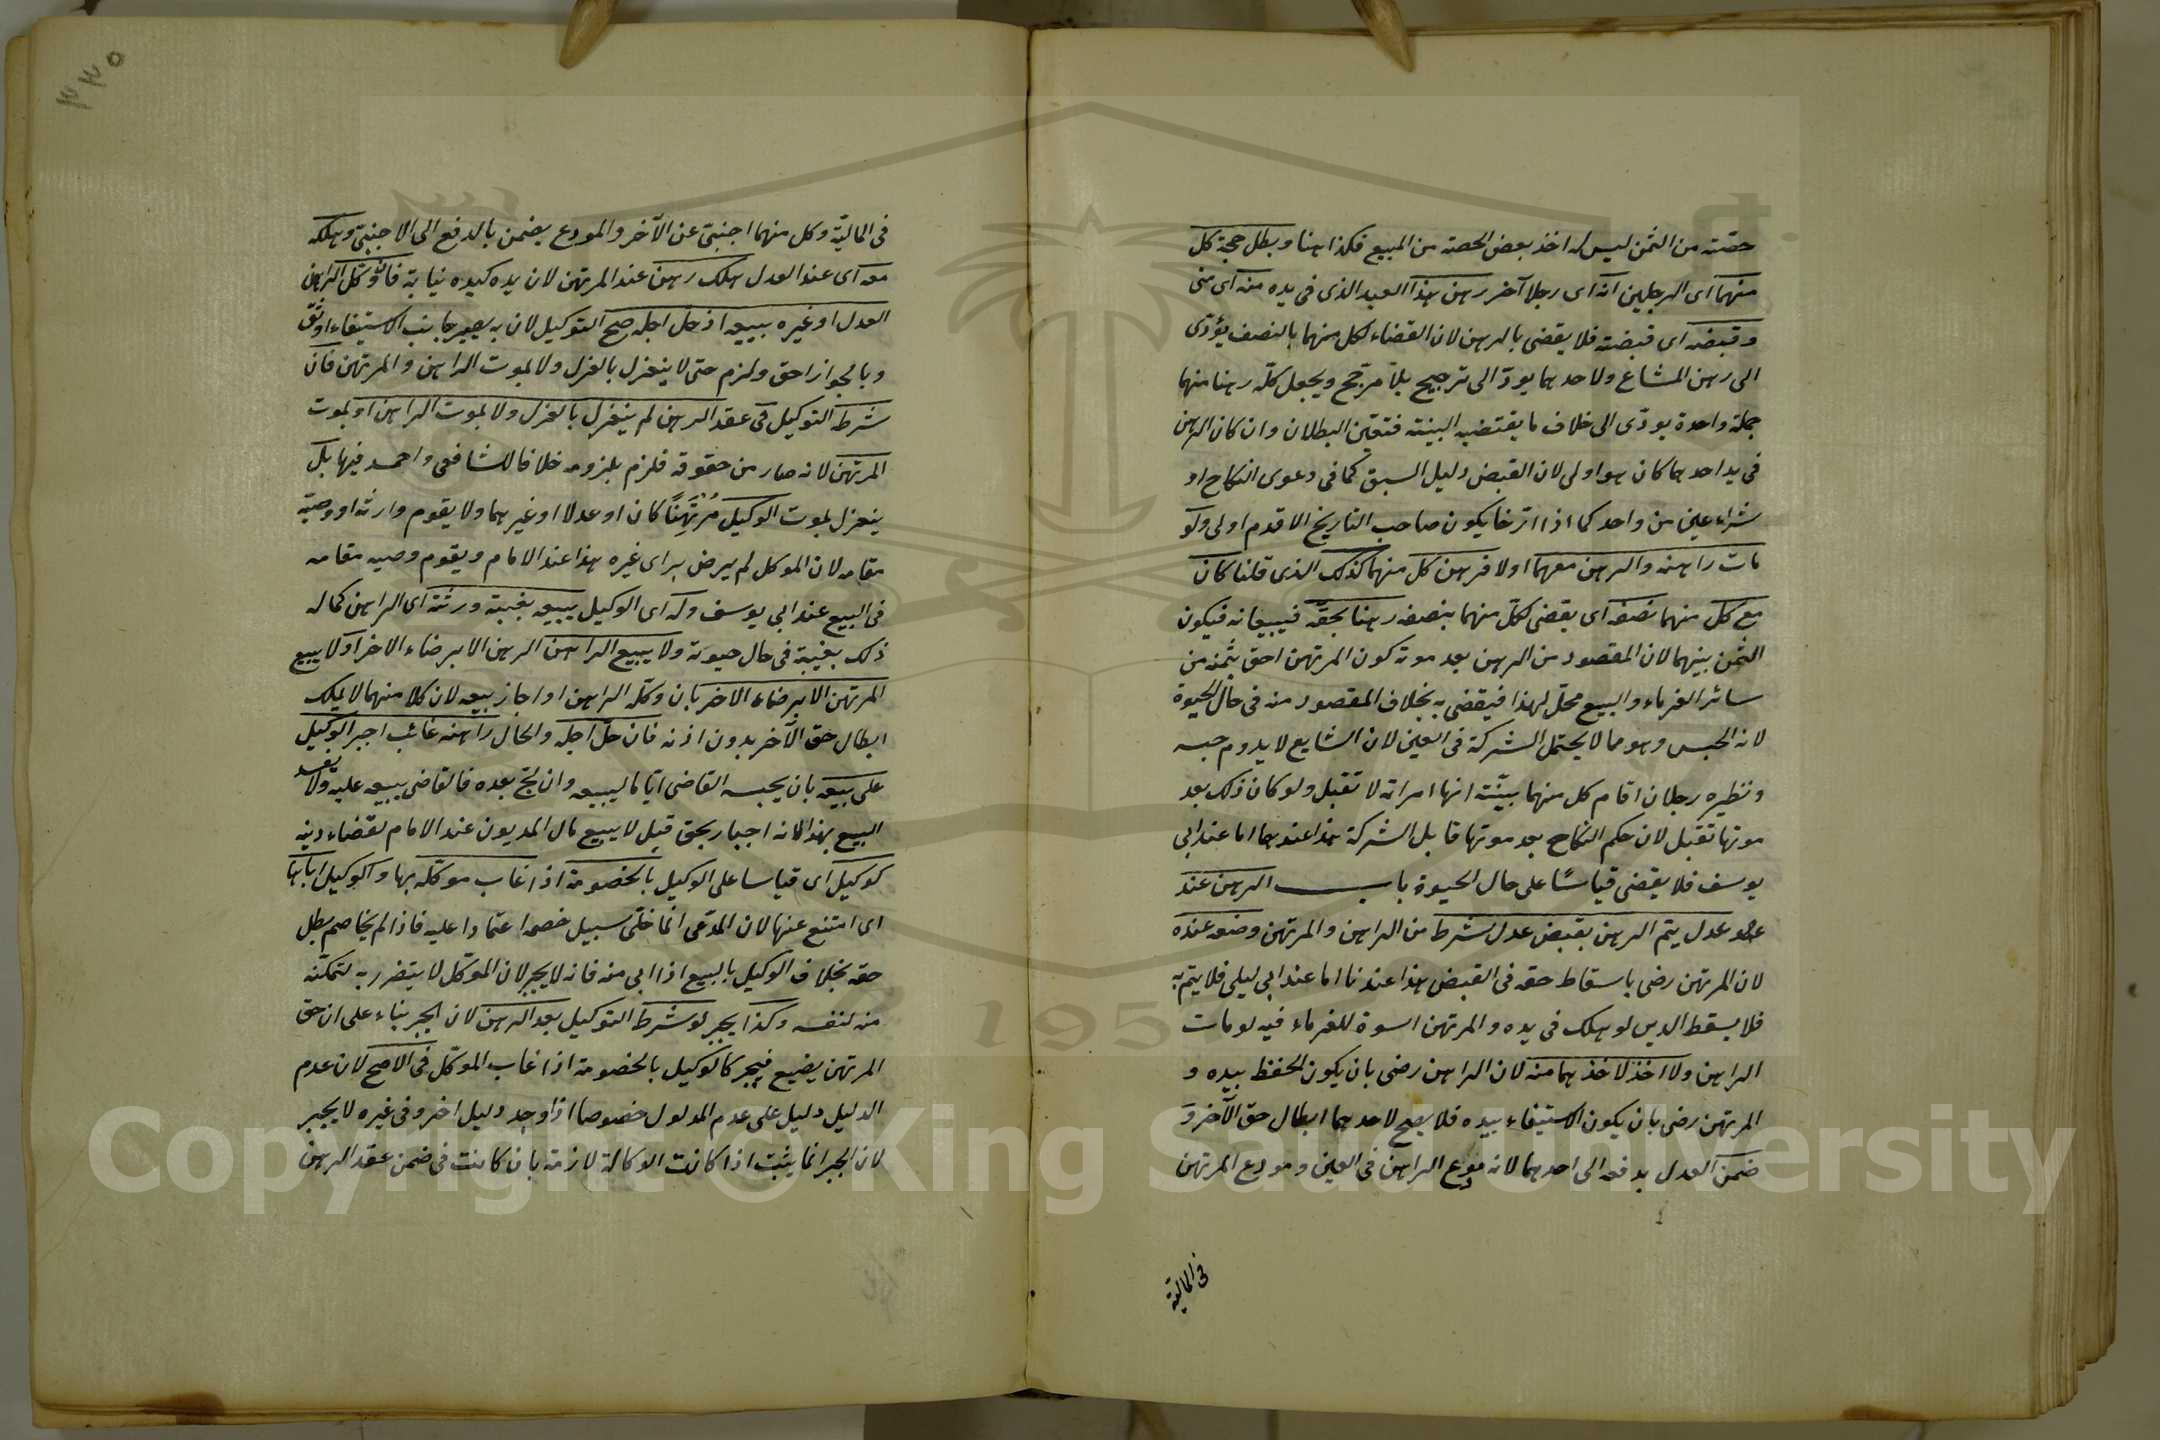 حصته من الثمن ليس له اخذ بعض الحصة من المبيع فكذا هنا وبطل حجة كل
منهما اى الرجلين انه اى رجلا آخر رهن هذا العبد الذى فى يده منه اى منى
وقبضه اى قبضته فلا يقضى بالرهن لان القضاء لكل منهما بالنصف يؤدى
الى رهن المشاع ولاحدهما يودّ الى ترجيح بلا مرجّح ويجعل كلّه رهنا منهما
جملة واحدة يودّى الى خلاف ما يقتضيه البينة فتعيّن البطلان وان كان الرهن
فى يد احدهما كان هو اولى لان القبض دليل السبق كما فى دعوى النكاح او
شراء عين من واحد كما اذا ارّخا يكون صاحب التاريخ الاقدم اولى ولو
مات راهنه والرهن معهما اولا فرهن كل منهما كذلك الذى قلنا كان
مع كل منهما نصفه اى يقضى لكلّ منهما بنصفه رهنا بحقّه فيبيعانه فيكون
الثمن بينهما لان المقصود من الرهن بعد موته كون المرتهن احق بثمنه من
سائر الغرماء والبيع محلّ لهذا فيقضى به بخلاف المقصود منه فى حال الحيوة
لانه الحبس وهو مما لا يحتمل الشركة فى العين لان الشايع لا يدوم حبسه
ونظيره رجلان اقام كل منهما بيّنة انها امراته لا تقبل ولو كان ذلك بعد
موتها تقبل لان حكم النكاح بعد موتها قابل الشركة هذا عندهما اما عند ابى
يوسف فلا يقضى قياسًا على حال الحيوة باب الرهن عند
عدل يتم الرهن بقبض عدل شرط من الراهن والمرتهن وضعه عنده
لان المرتهن رضى باسقاط حقه فى القبض هذا عندنا اما عند ابى ليلى فلا يتم به
فلا يسقط الدين لو هلك فى يده والمرتهن اسوة للغرماء فيه لو مات
الراهن ولا اخذ لاحدهما منه لان الراهن رضى بان يكون الحفظ بيده و
المرتهن رضى بان يكون الاستيفاء بيده فلا يصح لاحدهما ابطال حق الآخر و
ضمن العدل بدفعه الى احدهما لانه مودع الراهن فى العين ومودع المرتهن
فى المالية
٣٣٥
فى المالية وكل منهما اجنبىّ عن الآخر والمودع يضمن بالدفع الى الاجنبىّ وهلكه
معه اى عند العدل هلك رهن عند المرتهن لان يده كيده نيابة فان وكّل الراهن
العدل او غيره ببيعه اذ حل اجله صح التوكيل لان به يصير جانب الاستيفاء اوثق
وبالجواز احق ولزم حتى لا ينعزل بالعزل ولا بموت الراهن والمرتهن فان
شرط التوكيل فى عقد الرهن لم ينعزل بالعزل ولا بموت الراهن او بموت
المرتهن لانه صار من حقوقه فلزم بلزومه خلافا للشافعى واحمد فيها بل
ينعزل بموت الوكيل مُرْتَهِنًا كان او عدلا او غيرهما ولا يقوم وارثه او وصيّه
مقامه لان الموكل لم يرض براى غيره هذا عند الامام ويقوم وصيه مقامه
فى البيع عند ابي يوسف وله اى الوكيل بيعه بغيبة ورثته اى الراهن كما له
ذلك بغيبته فى حال حيوته ولا يبيع الراهن الرهن الا برضاء الاخر او لا يبيع
المرتهن الا برضاء الاخر بان وكّله الراهن او اجاز بيعه لان كلا منهما لا يملك
ابطال حق الآخر بدون اذنه فان حلّ اجله والحال راهنه غائب اجبر الوكيل
على بيعه بان يحبسه القاضى ايّاما ليبيعه وان لجّ بعده فالقاضى يبيعه عليه ولا يفسد
البيع بهذا لانه اجبار بحق قيل لا يبيع مال المديون عند الامام لقضاء دينه
كوكيل اى قياسا على الوكيل بالخصومة اذا غاب موكّله بها والوكيل اباها
اى امتنع عنها لان المدّعى انما خلّى سبيل خصمه اعتمادا عليه فاذا لم يخاصم بطل
حقه بخلاف الوكيل بالبيع اذا ابى منه فانه لا يجبر لان الموكّل لا يتضرر به لتمكّنه
منه لنفسه وكذا يجبر لو شرط التوكيل بعد الرهن لان الجبر بناء على ان حق
المرتهن يضيع فيجبر كالوكيل بالخصومة اذا غاب الموكّل فى الاصح لان عدم
الدليل دليل على عدم المدلول خصوصا اذا وجد دليل اخر وفى غيره لا يجبر
لان الجبر انما يثبت اذا كانت الوكالة لازمة بان كانت فى ضمن عقد الرهن
Copyright © King Saud University
195